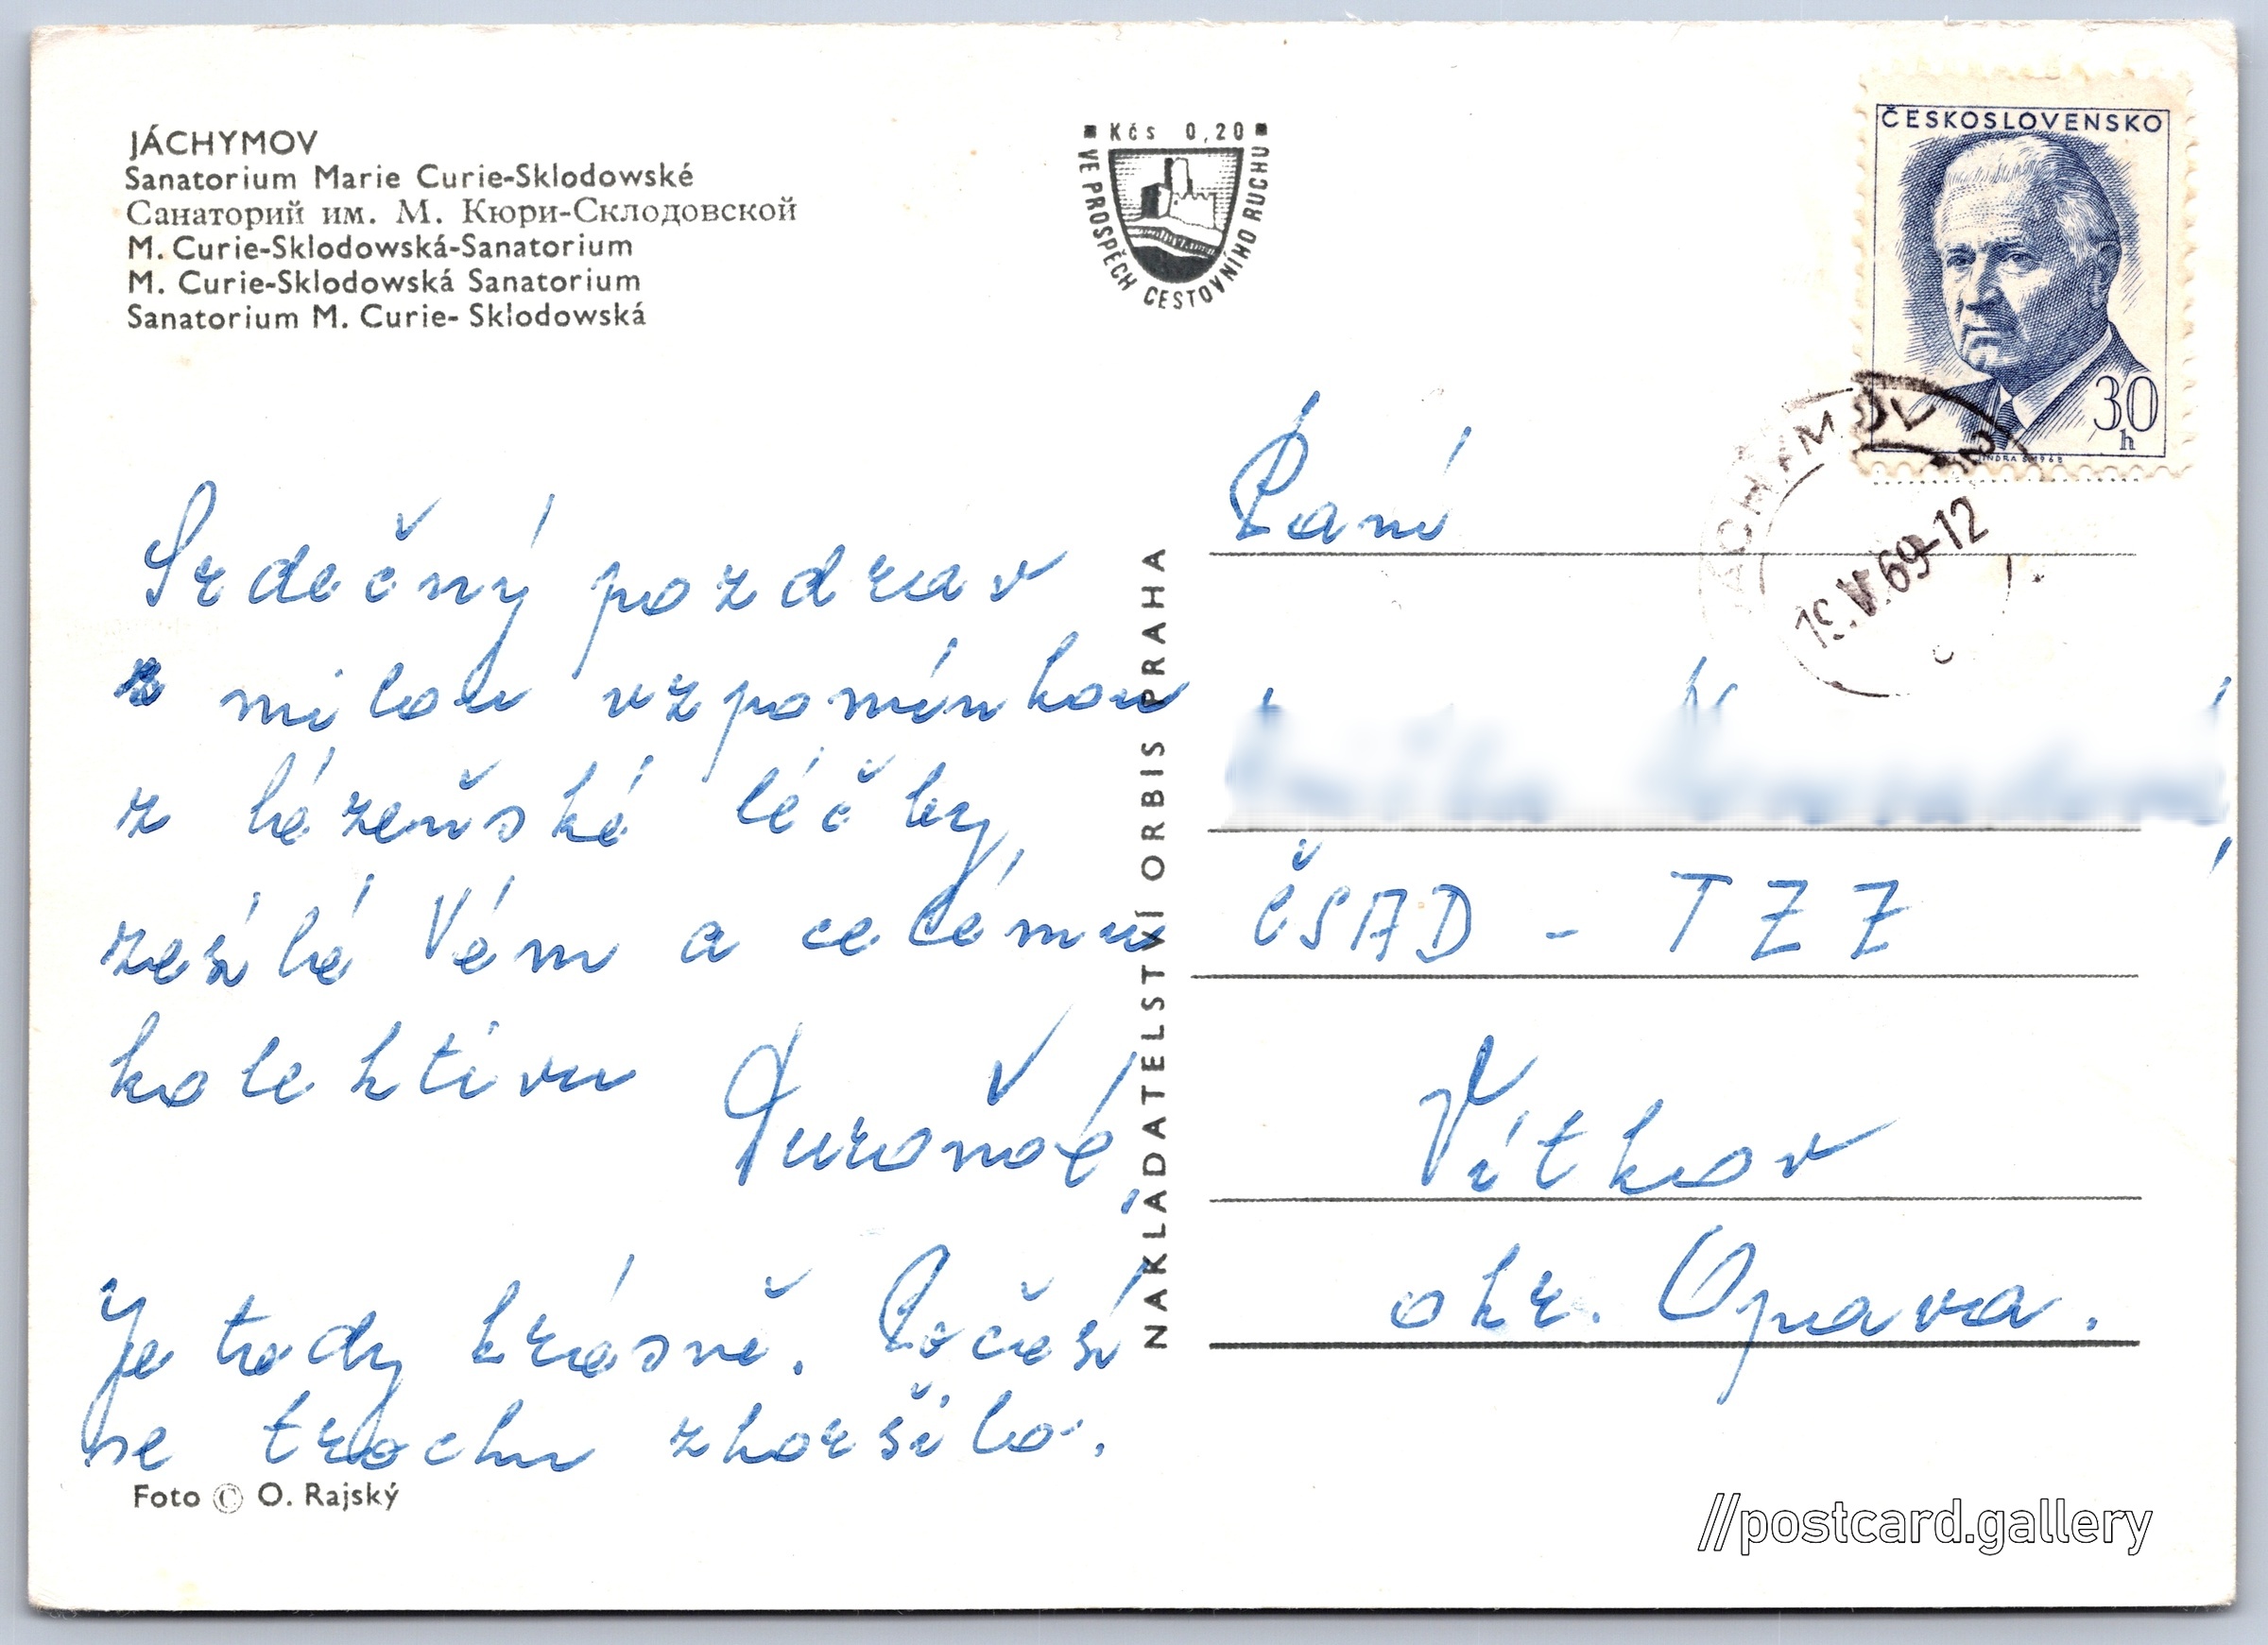 JÁCHYMOV
Sanatorium Marie Curie-Sklodowské
Санаторий им. М. Кюри-Склодовской
M. Curie-Sklodowská-Sanatorium
M. Curie-Sklodowská Sanatorium
Sanatorium M. Curie- Sklodowská
Kčs 0,20
VE PROSPĚCH CESTOVNÍHO RUCHU
ČESKOSLOVENSKO
30
h
JINDRA S. 1968
JÁCHYMOV
19.V.69-12
Srdečný pozdrav
s milou vzpomínkou
z lázeňské léčby,
zesílá Vám a celému
kolektivu
Je tady krásně. Počasí
se trochu zhoršilo.
Foto © O. Rajský
NAKLADATELSTVÍ ORBIS PRAHA
Paní
ČSAD - TZZ
Vítkov
okr. Opava.
//postcard.gallery